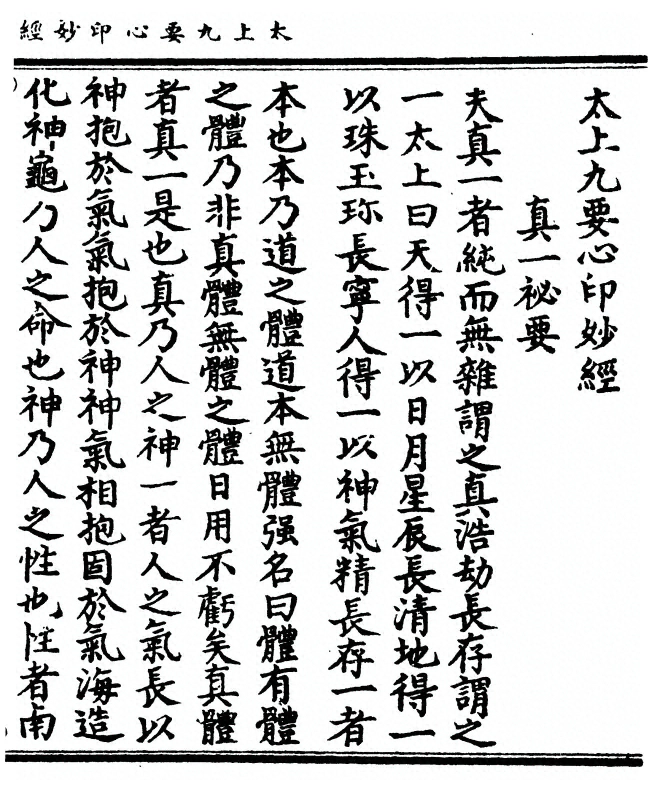 太上九要心印妙經
太上九要心印妙經
真一祕要
夫真一者純而無雜謂之真浩劫長存謂之
一太上曰天得一以日月星辰長清地得一
以珠玉珎長寧人得一以神氣精長存一者
本也本乃道之體道本無體强名曰體有體
之體乃非真體無體之體日用不虧矣真體
者真一是也真乃人之神一者人之氣長以
神抱於氣氣抱於神神氣相抱固於氣海造
化神龜乃人之命也神乃人之性也性者南